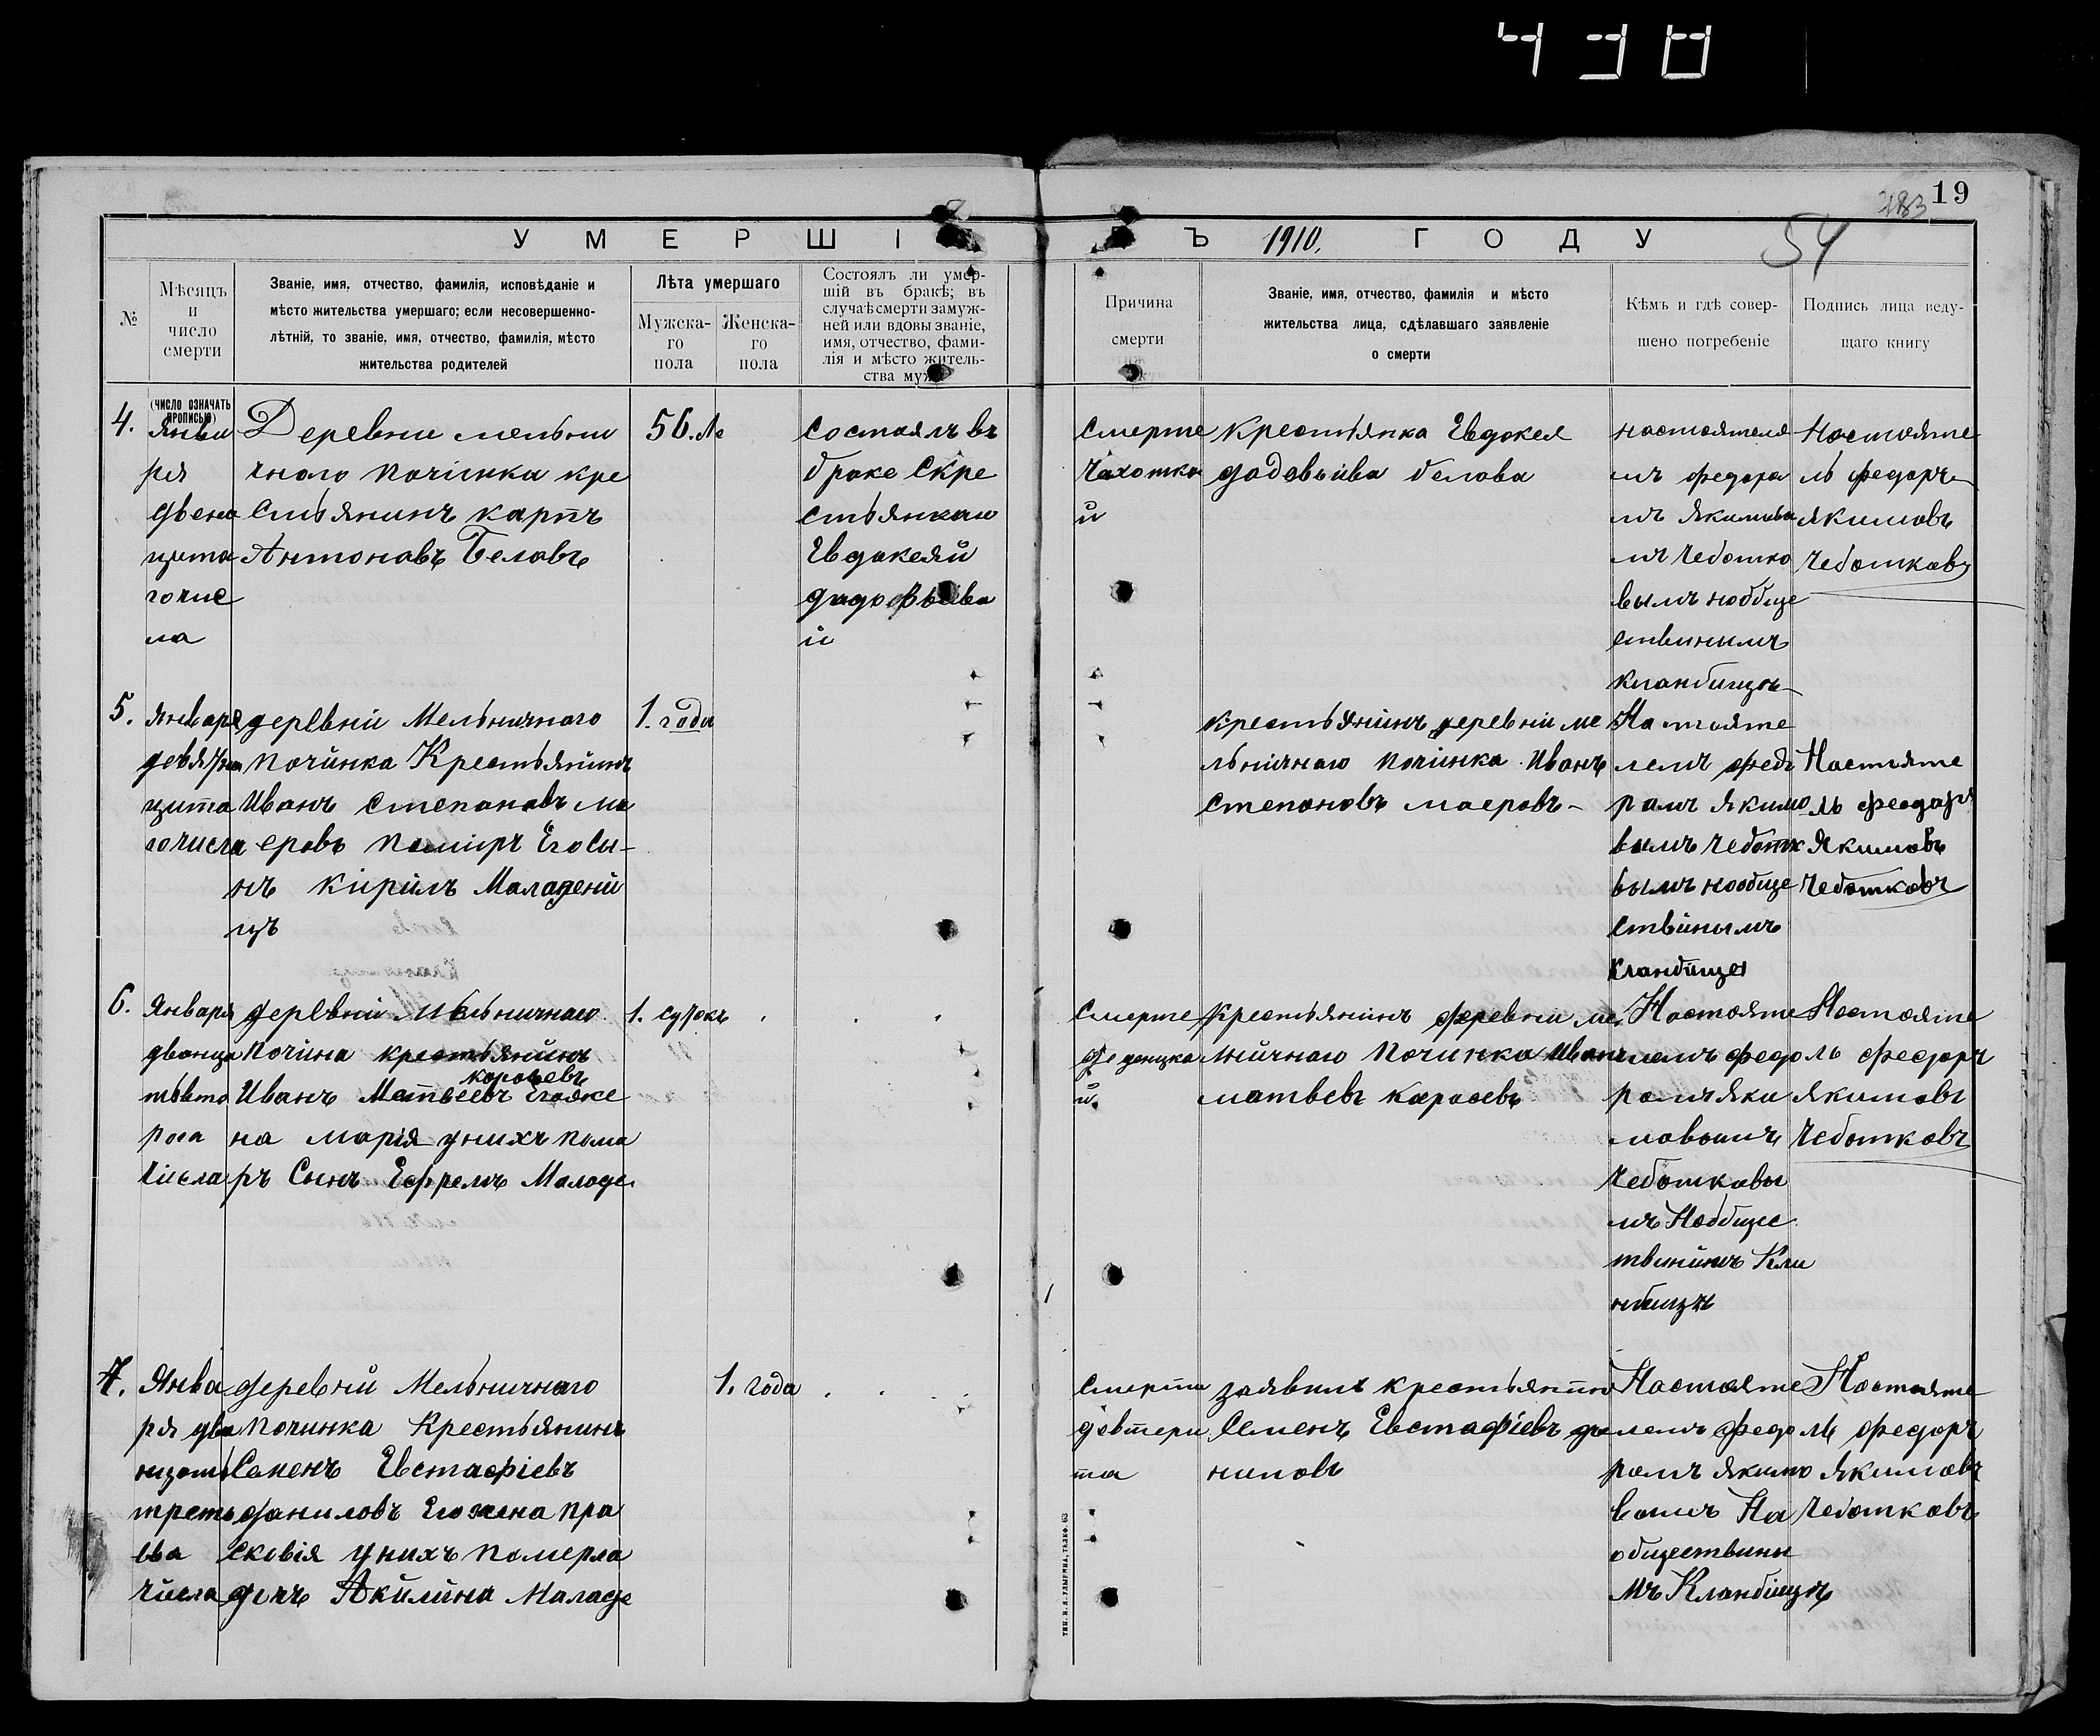 430
19
283
54
УМЕРШІЕ ВЪ 1910, ГОДУ
№
Мѣсяцъ
и
число
смерти
Званіе, имя, отчество, фамилія, исповѣданіе и
мѣсто жительства умершаго; если несовершенно-
лѣтній, то званіе, имя, отчество, фамилія, мѣсто
жительства родителей
Лѣта умершаго
Мужска-
го
пола
Женска-
го
пола
Состоялъ ли умер-
шій въ бракѣ; въ
случаѣ смерти замуж-
ней или вдовы званіе,
имя, отчество, фами-
лія и мѣсто житель-
ства мужа
Причина
смерти
Званіе, имя, отчество, фамилія и мѣсто
жительства лица, сдѣлавшаго заявленіе
о смерти
Кѣмъ и гдѣ совер-
шено погребеніе
Подпись лица веду-
щаго книгу
(число означать
прописью)
4.
Янва
ря
двена
цата
гочис
ла
Деревни мельни
чного починка кре
стьянинъ карпъ
Антоновъ Беловъ
56. ле
состоялъ въ
браке Скре
стьянкаю
Евдокеяй
й
Смерте
Чахотка
й
Крестьянка Евдокея
белова
настоятеле
мъ федора
мъ Якимова
мъ Чеботко
вымъ нообще
ственымъ
кланбищъ
Настояте
ль федоръ
Якимовъ
Чеботковъ
5.
Января
девятна
цата
гочисла
деревни Мельничнаго
починка Крестьянинъ
Иванъ степановъ ма
еровъ помиръ Его Сы-
нъ Кирилъ Маладени
цъ
1. года
крестьянинъ деревни ме
льничнаго починка Иванъ
степановъ маеровъ-
Настояте
лемъ федо
рамъ Якимо
вымъ чеботк
вымъ нообще
ствинымъ
Кланбище
Настояте
ль феодоръ
Якимовъ
Чеботковъ
6.
Января
дванца
тьвто
рога
Числа
деревни Мельничнаго
Почина крестьянинъ
каросевъ
Иванъ Матвеевъ Егояже
на марія унихъ пома
ръ Сынъ Ефремъ Маладе
1. суток
Смерте
й.
Крестьянинъ деревни ме
льничнаго Починка Иванъ
матвевъ каросевъ
Настояте
лемъ федо
ромъ Яки
мовымъ
Чеботковы
мъ Нообщес
твинымъ Кла
нбищъ
Настояте
ль федоръ
Якимовъ
Чеботковъ
7.
Янва
ря два
нцать
треть
ева
числа
деревни Мельничнаго
починка Крестьянинъ
Семенъ Евстафіевъ
даниловъ Его жена пра
сковія унихъ померла
дочъ Акилина Маладе
1. года
Смерти
девтери
та
заявилъ крестьянинъ
Семенъ Евстафіевъ да
ниловъ
Настояте
лемъ федо
ромъ якимо
вымъ На
обществины
мъ Кланбищъ
Настояте
ль федоръ
Якимовъ
Чеботковъ